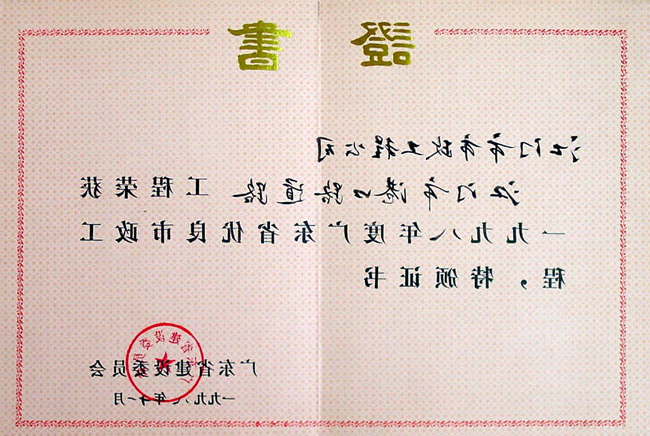 證書
江门市市政工程公司
江门市港口路道路 工程荣获
一九九八年度广东省优良市政工
程，特颁证书
广东省建设委员会
一九九八年十一月